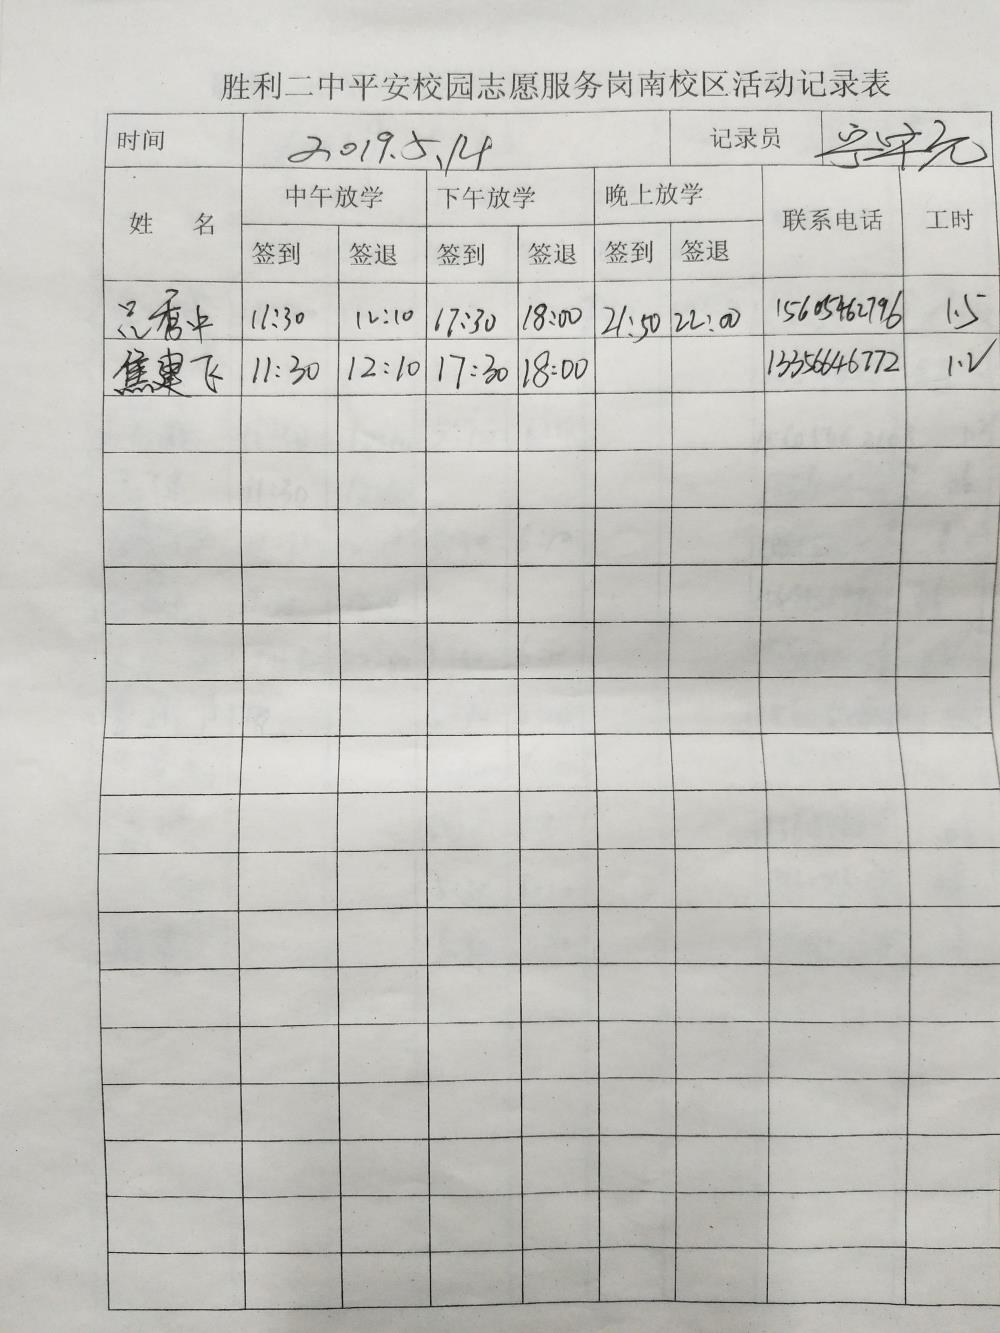 胜利二中平安校园志愿服务岗南校区活动记录表
时间 2019.5.14 记录员
姓 名 中午放学 下午放学 晚上放学 联系电话 工时
签到 签退 签到 签退 签到 签退
11:30 12:10 17:30 18:00 21:50 22:00 15605462796 1.5
焦建飞 11:30 12:10 17:30 18:00 13356646772 1.2